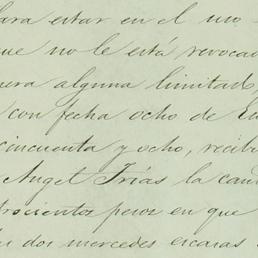 para estar en el uso
que no le está revocad
nera alguna limitado,
con fecha ocho de En
cincuenta y ocho, recibi
Angel Frías la cant
trocientos pesos en que
dos mercedes escasas